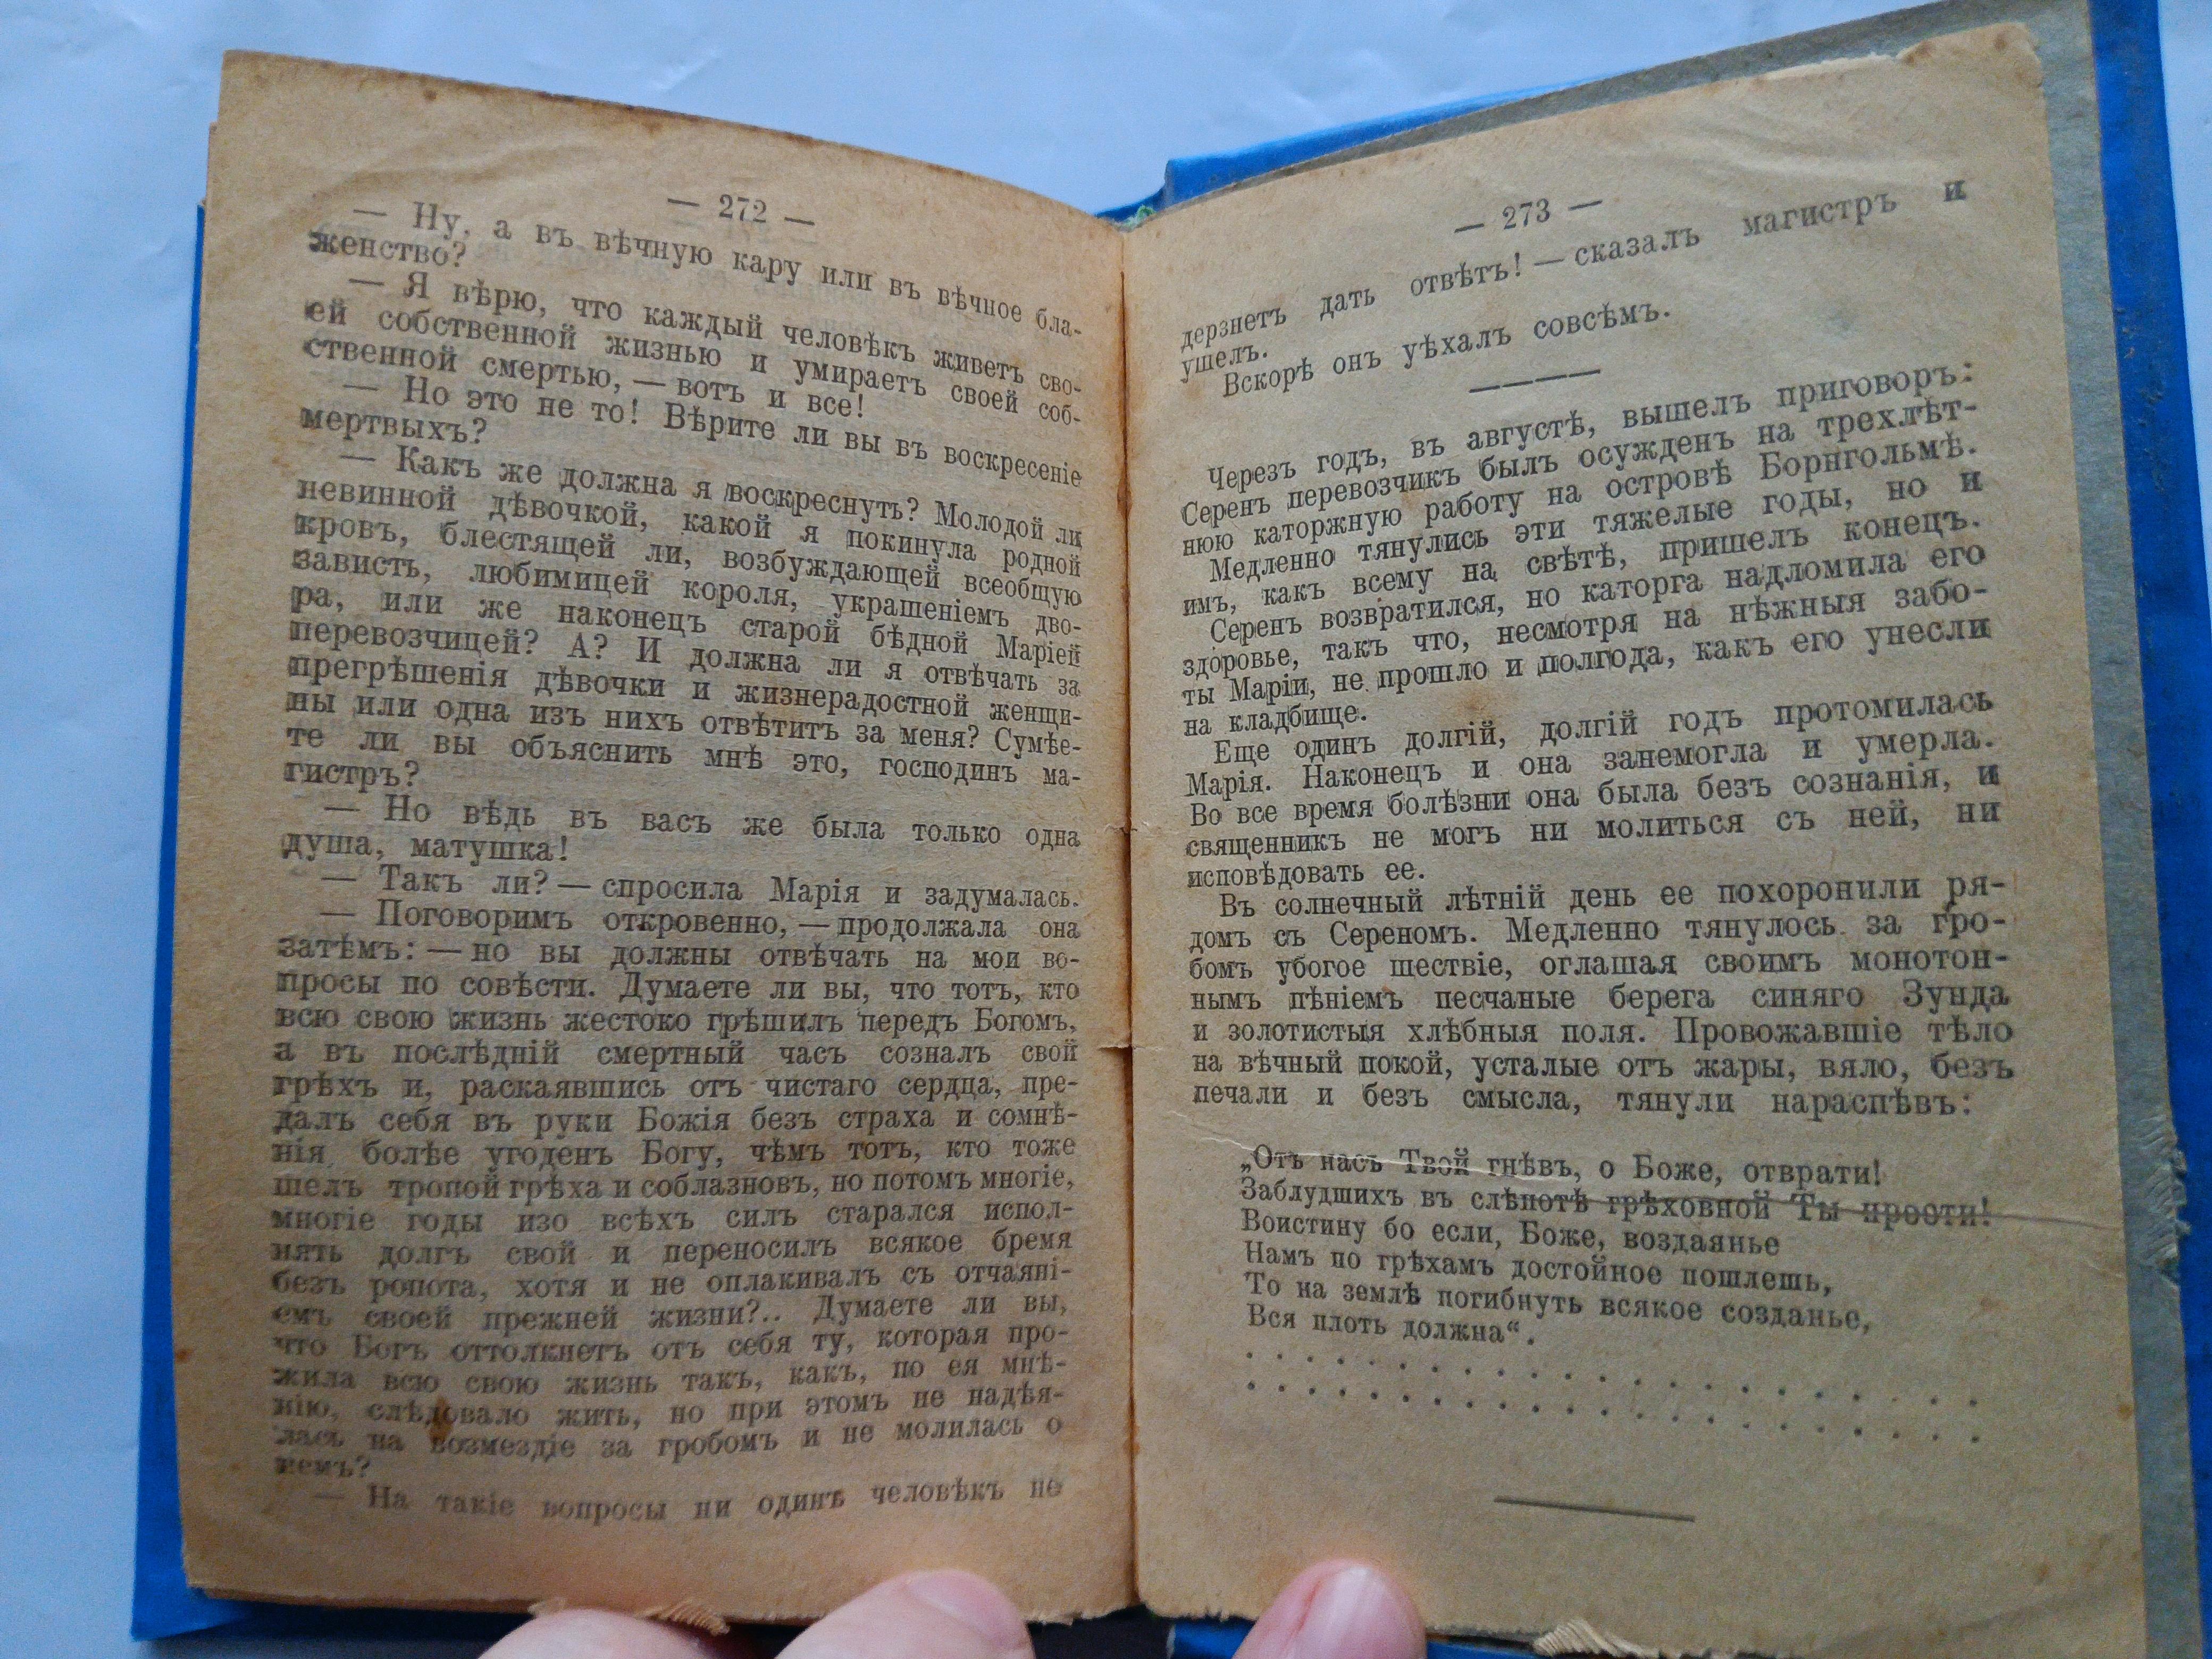 — 272 —
— Ну, а въ вѣчную кару или въ вѣчное бла-
женство?
— Я вѣрю, что каждый человѣкъ живетъ сво-
ей собственной жизнью и умираетъ своей соб-
ственной смертью, — вотъ и все!
— Но это не то! Вѣрите ли вы въ воскресеніе
мертвыхъ?
— Какъ же должна я воскреснуть? Молодой ли
невинной дѣвочкой, какой я покинула родной
кровъ, блестящей ли, возбуждающей всеобщую
зависть, любимицей короля, украшеніемъ дво-
ра, или же наконецъ старой бѣдной Маріей
перевозчицей? А? И должна ли я отвѣчать за
прегрѣшенія дѣвочки и жизнерадостной женщи-
ны или одна изъ нихъ отвѣтитъ за меня? Сумѣе-
те ли вы объяснить мнѣ это, господинъ ма-
гистръ?
— Но вѣдь въ васъ же была только одна
душа, матушка!
— Такъ ли? — спросила Марія и задумалась.
— Поговоримъ откровенно, — продолжала она
затѣмъ: — но вы должны отвѣчать на мои во-
просы по совѣсти. Думаете ли вы, что тотъ, кто
всю свою жизнь жестоко грѣшилъ передъ Богомъ,
а въ послѣдній смертный часъ созналъ свой
грѣхъ и, раскаявшись отъ чистаго сердца, пре-
далъ себя въ руки Божія безъ страха и сомнѣ-
нія болѣе угоденъ Богу, чѣмъ тотъ, кто тоже
шелъ тропой грѣха и соблазновъ, но потомъ многіе,
многіе годы изо всѣхъ силъ старался испол-
нять долгъ свой и переносилъ всякое бремя
безъ ропота, хотя и не оплакивалъ съ отчаяні-
емъ своей прежней жизни?.. Думаете ли вы,
что Богъ оттолкнетъ отъ себя ту, которая про-
жила всю свою жизнь такъ, какъ, по ея мнѣ-
нію, слѣдовало жить, но при этомъ не надѣя-
лась на возмездіе за гробомъ и не молилась о
немъ?
— На такіе вопросы ни одинъ человѣкъ не
— 273 —
дерзнетъ дать отвѣтъ! — сказалъ магистръ и
ушелъ.
Вскорѣ онъ уѣхалъ совсѣмъ.
Черезъ годъ, въ августѣ, вышелъ приговоръ:
Серенъ перевозчикъ былъ осужденъ на трехлѣт-
нюю каторжную работу на островѣ Борнгольмѣ.
Медленно тянулись эти тяжелые годы, но и
имъ, какъ всему на свѣтѣ, пришелъ конецъ.
Серенъ возвратился, но каторга надломила его
здоровье, такъ что, несмотря на нѣжныя забо-
ты Маріи, не прошло и полгода, какъ его унесли
на кладбище.
Еще одинъ долгій, долгій годъ протомилась
Марія. Наконецъ и она занемогла и умерла.
Во все время болѣзни она была безъ сознанія, и
священникъ не могъ ни молиться съ ней, ни
исповѣдовать ее.
Въ солнечный лѣтній день ее похоронили ря-
домъ съ Сереномъ. Медленно тянулось за гро-
бомъ убогое шествіе, оглашая своимъ монотон-
нымъ пѣніемъ песчаные берега синяго Зунда
и золотистыя хлѣбныя поля. Провожавшіе тѣло
на вѣчный покой, усталые отъ жары, вяло, безъ
печали и безъ смысла, тянули нараспѣвъ:
„Отъ насъ Твой гнѣвъ, о Боже, отврати!
Заблудшихъ въ слѣпотѣ грѣховной Ты прости!
Воистину бо если, Боже, воздаянье
Намъ по грѣхамъ достойное пошлешь,
То на землѣ погибнуть всякое созданье,
Вся плоть должна“.
. . . . . . . . . . . . . . . . . . . .
. . . . . . . . . . . . . . . . . . . .